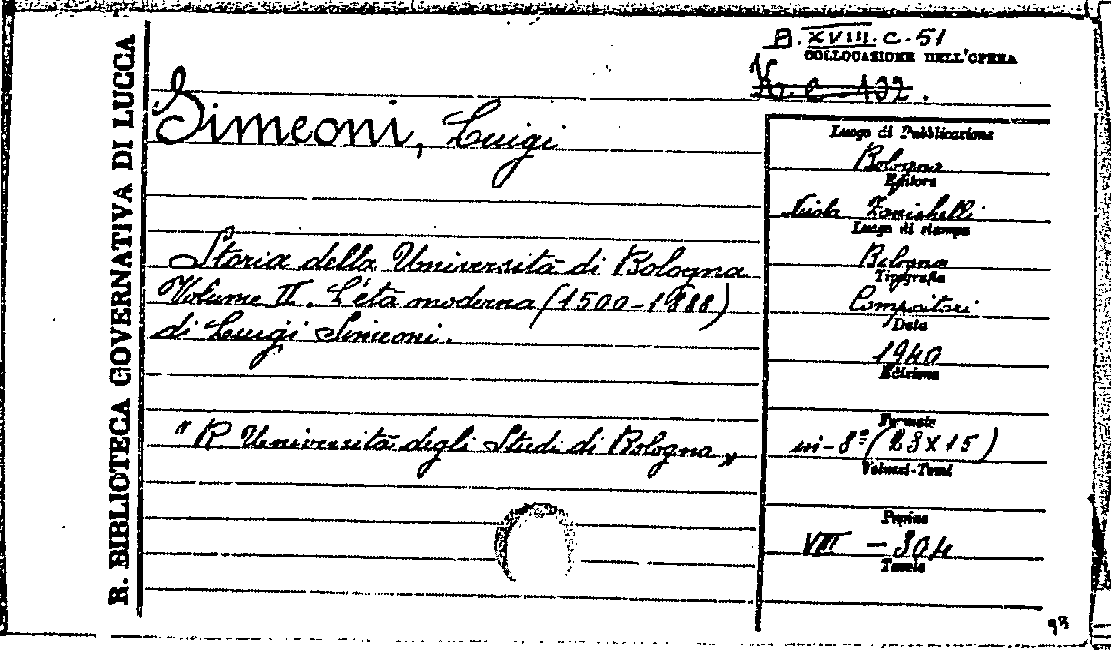 R. BIBLIOTECA GOVERNATIVA DI LUCCA
B. XVIII. C. 51
COLLOCAZIONE DELL'OPERA
Simeoni, Luigi
Storia della Università di Bologna
Volume II. L'età moderna (1500-1888)
di Luigi Simeoni.
"R Università degli Studi di Bologna"
Luogo di Pubblicazione
Bologna
Editore
Zanichelli
Luogo di stampa
Bologna
Tipografia
Compositori
Data
1940
Edizione
Formato
in-8° (23x15)
Volumi-Tomi
Pagine
VIII - 304
Tavole